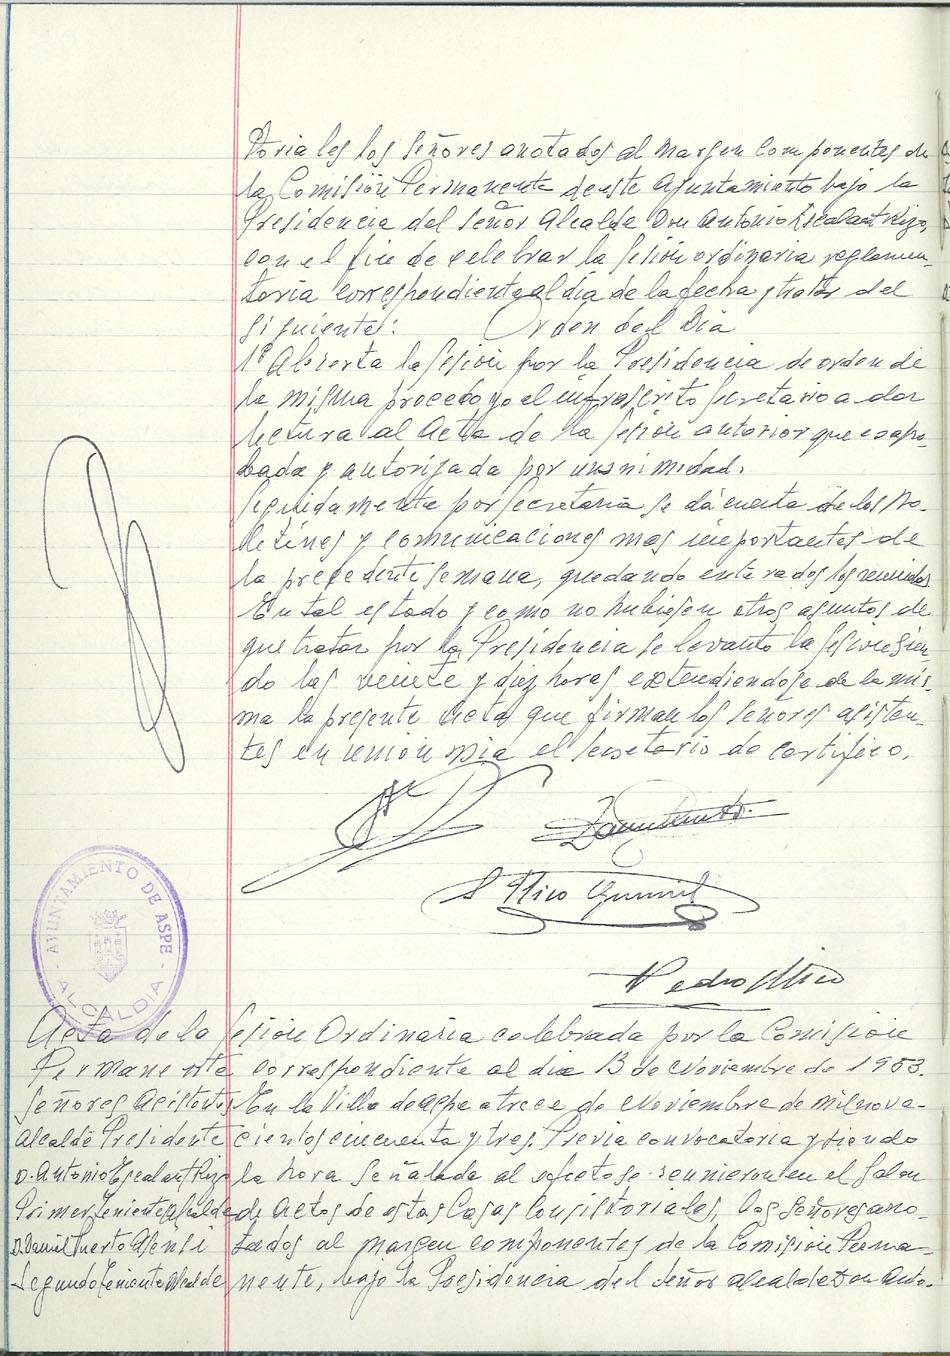 toriales los señores anotados al margen componentes de
la Comisión Permanente de este Ayuntamiento bajo la
Presidencia del Señor Alcalde Don Antonio Escalant Rizo,
con el fin de celebrar la sesión ordinaria reglamen-
taria correspondiente al día de la fecha y tratar del
siguiente: Orden del Dia
1º Abierta la sesión por la Presidencia de orden de
la misma procedo yo el infrascrito Secretario a dar
lectura al Acta de la sesión anterior que es apro-
bada y autorizada por unanimidad.
Seguidamente por Secretaria se dá cuenta de los Bo-
letines y comunicaciones mas importantes de
la precedente semana, quedando enterados los reunidos
En tal estado y como no hubiesen otros asuntos de
que tratar por la Presidencia se levanto la sesión sien-
do las veinte y diez horas extendiendose de la mis-
ma la presente Acta que firman los señores asisten-
tes en unión mia el Secretario de certifico.
S Mico Gumiel
Pedro Mico
AYUNTAMIENTO DE ASPE - ALCALDIA -
Acta de la Sesión Ordinaria celebrada por la Comisión
Permanente correspondiente al dia 13 de Noviembre de 1953.
Señores Asistentes En la Villa de Aspe a trece de Noviembre de mil nove-
Alcalde Presidente cientos cincuenta y tres. Previa convocatoria y siendo
D. Antonio Escalant Rizo la hora señalada al efecto se reunieron en el Salon
Primer Teniente Alcalde de Actos de estas Casas Consistoriales, los señores ano-
D. Daniel Puerto Asensi tados al margen componentes de la Comision Perma-
Segundo Teniente Alcalde nente, bajo la Presidencia del Señor Alcalde Don Anto-